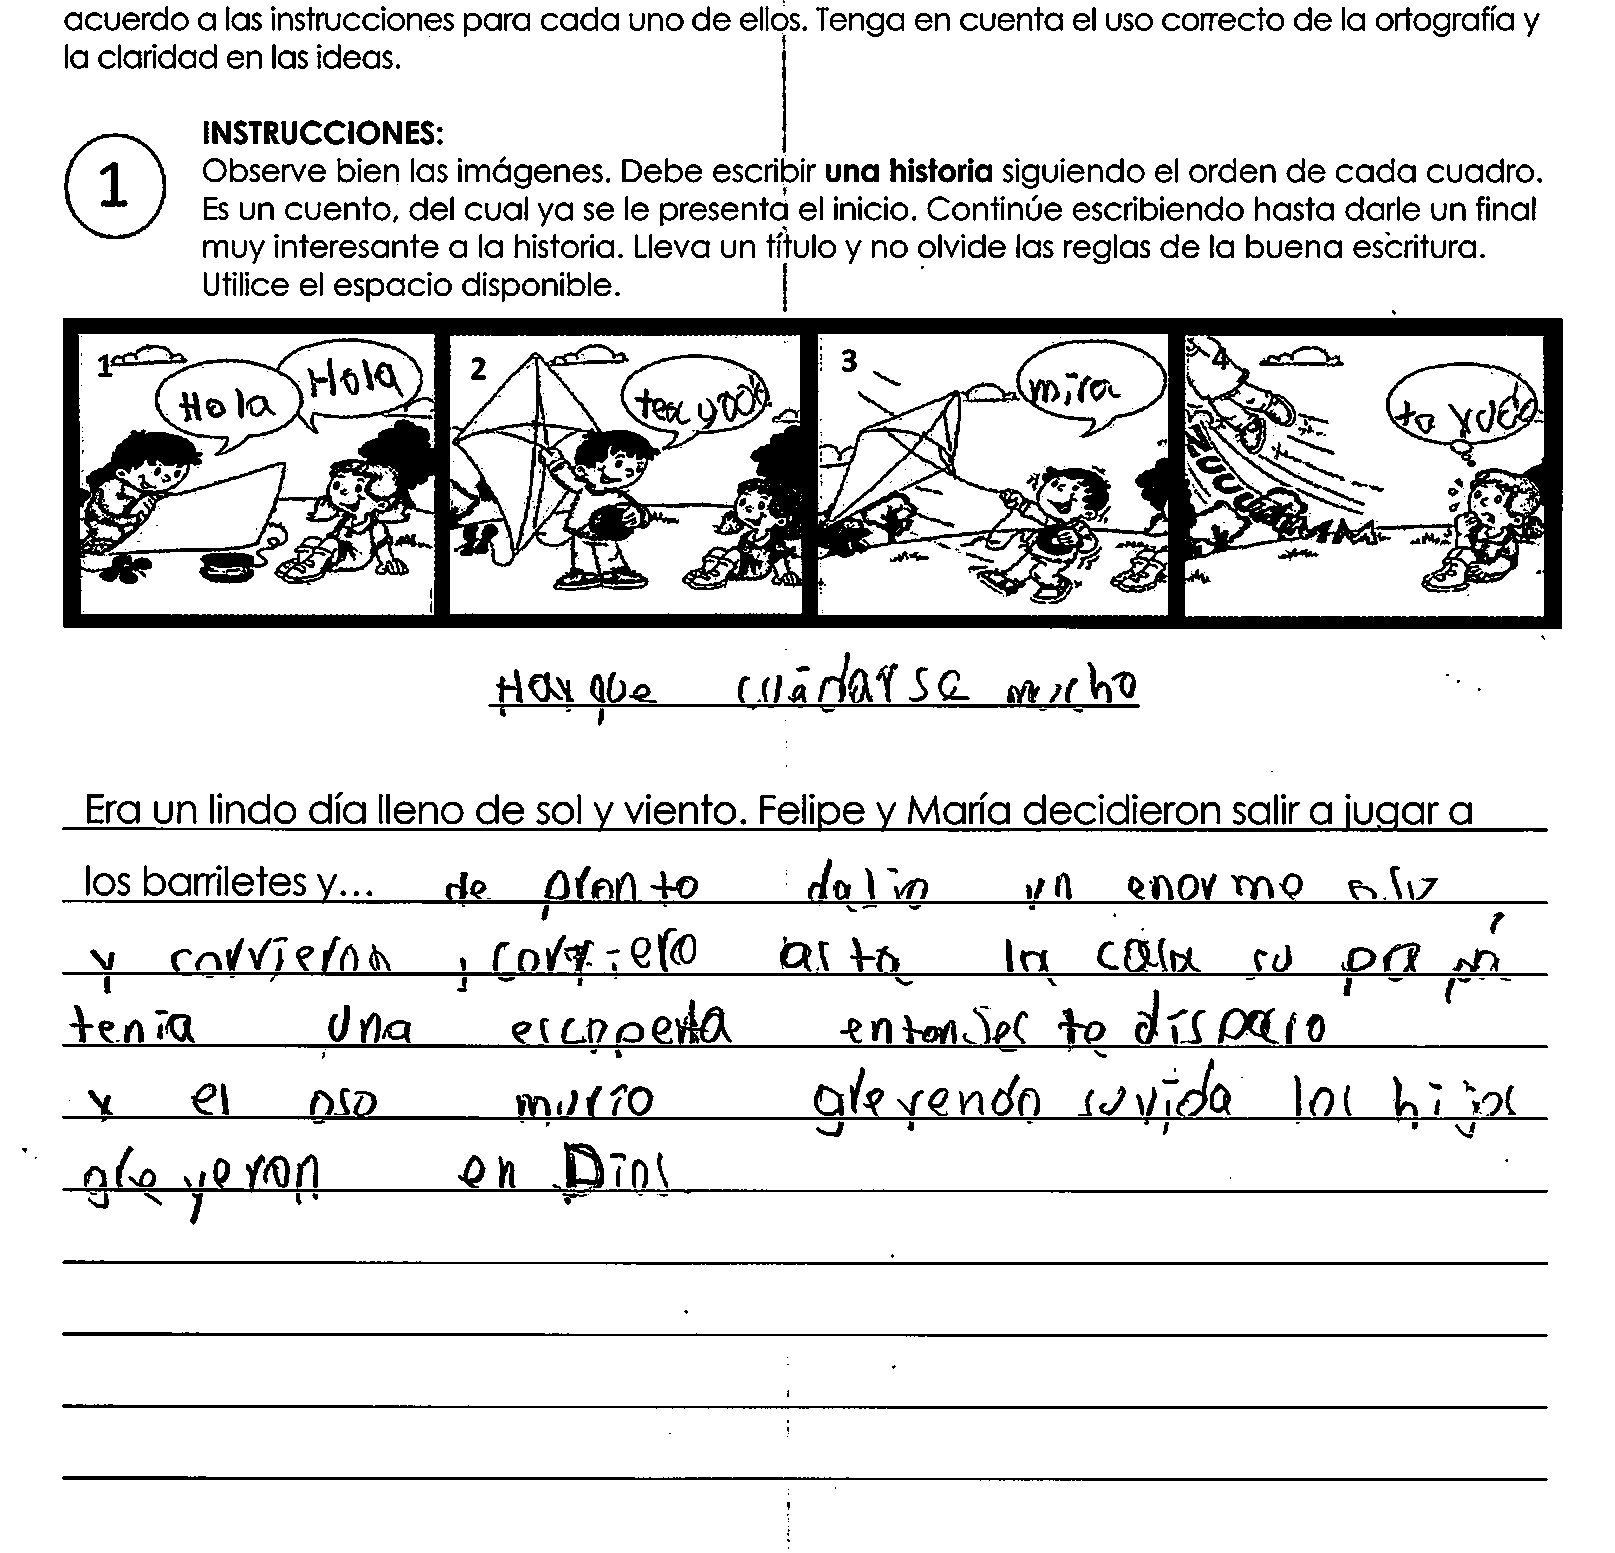 acuerdo a las instrucciones para cada uno de ellos. Tenga en cuenta el uso correcto de la ortografía y
la claridad en las ideas.
INSTRUCCIONES:
1
Observe bien las imágenes. Debe escribir una historia siguiendo el orden de cada cuadro.
Es un cuento, del cual ya se le presenta el inicio. Continúe escribiendo hasta darle un final
muy interesante a la historia. Lleva un título y no olvide las reglas de la buena escritura.
Utilice el espacio disponible.
1 Hola Hola
2
3 mira
4
ZUUUUMMM
Hay que cuidarse mucho
Era un lindo día lleno de sol y viento. Felipe y María decidieron salir a jugar a
los barriletes y... de pronto un enorme
y corrieron, corriero asta la casa su papá
tenia una escopeta entonses disparo
y el oso murio su vida los hijos
en Dios